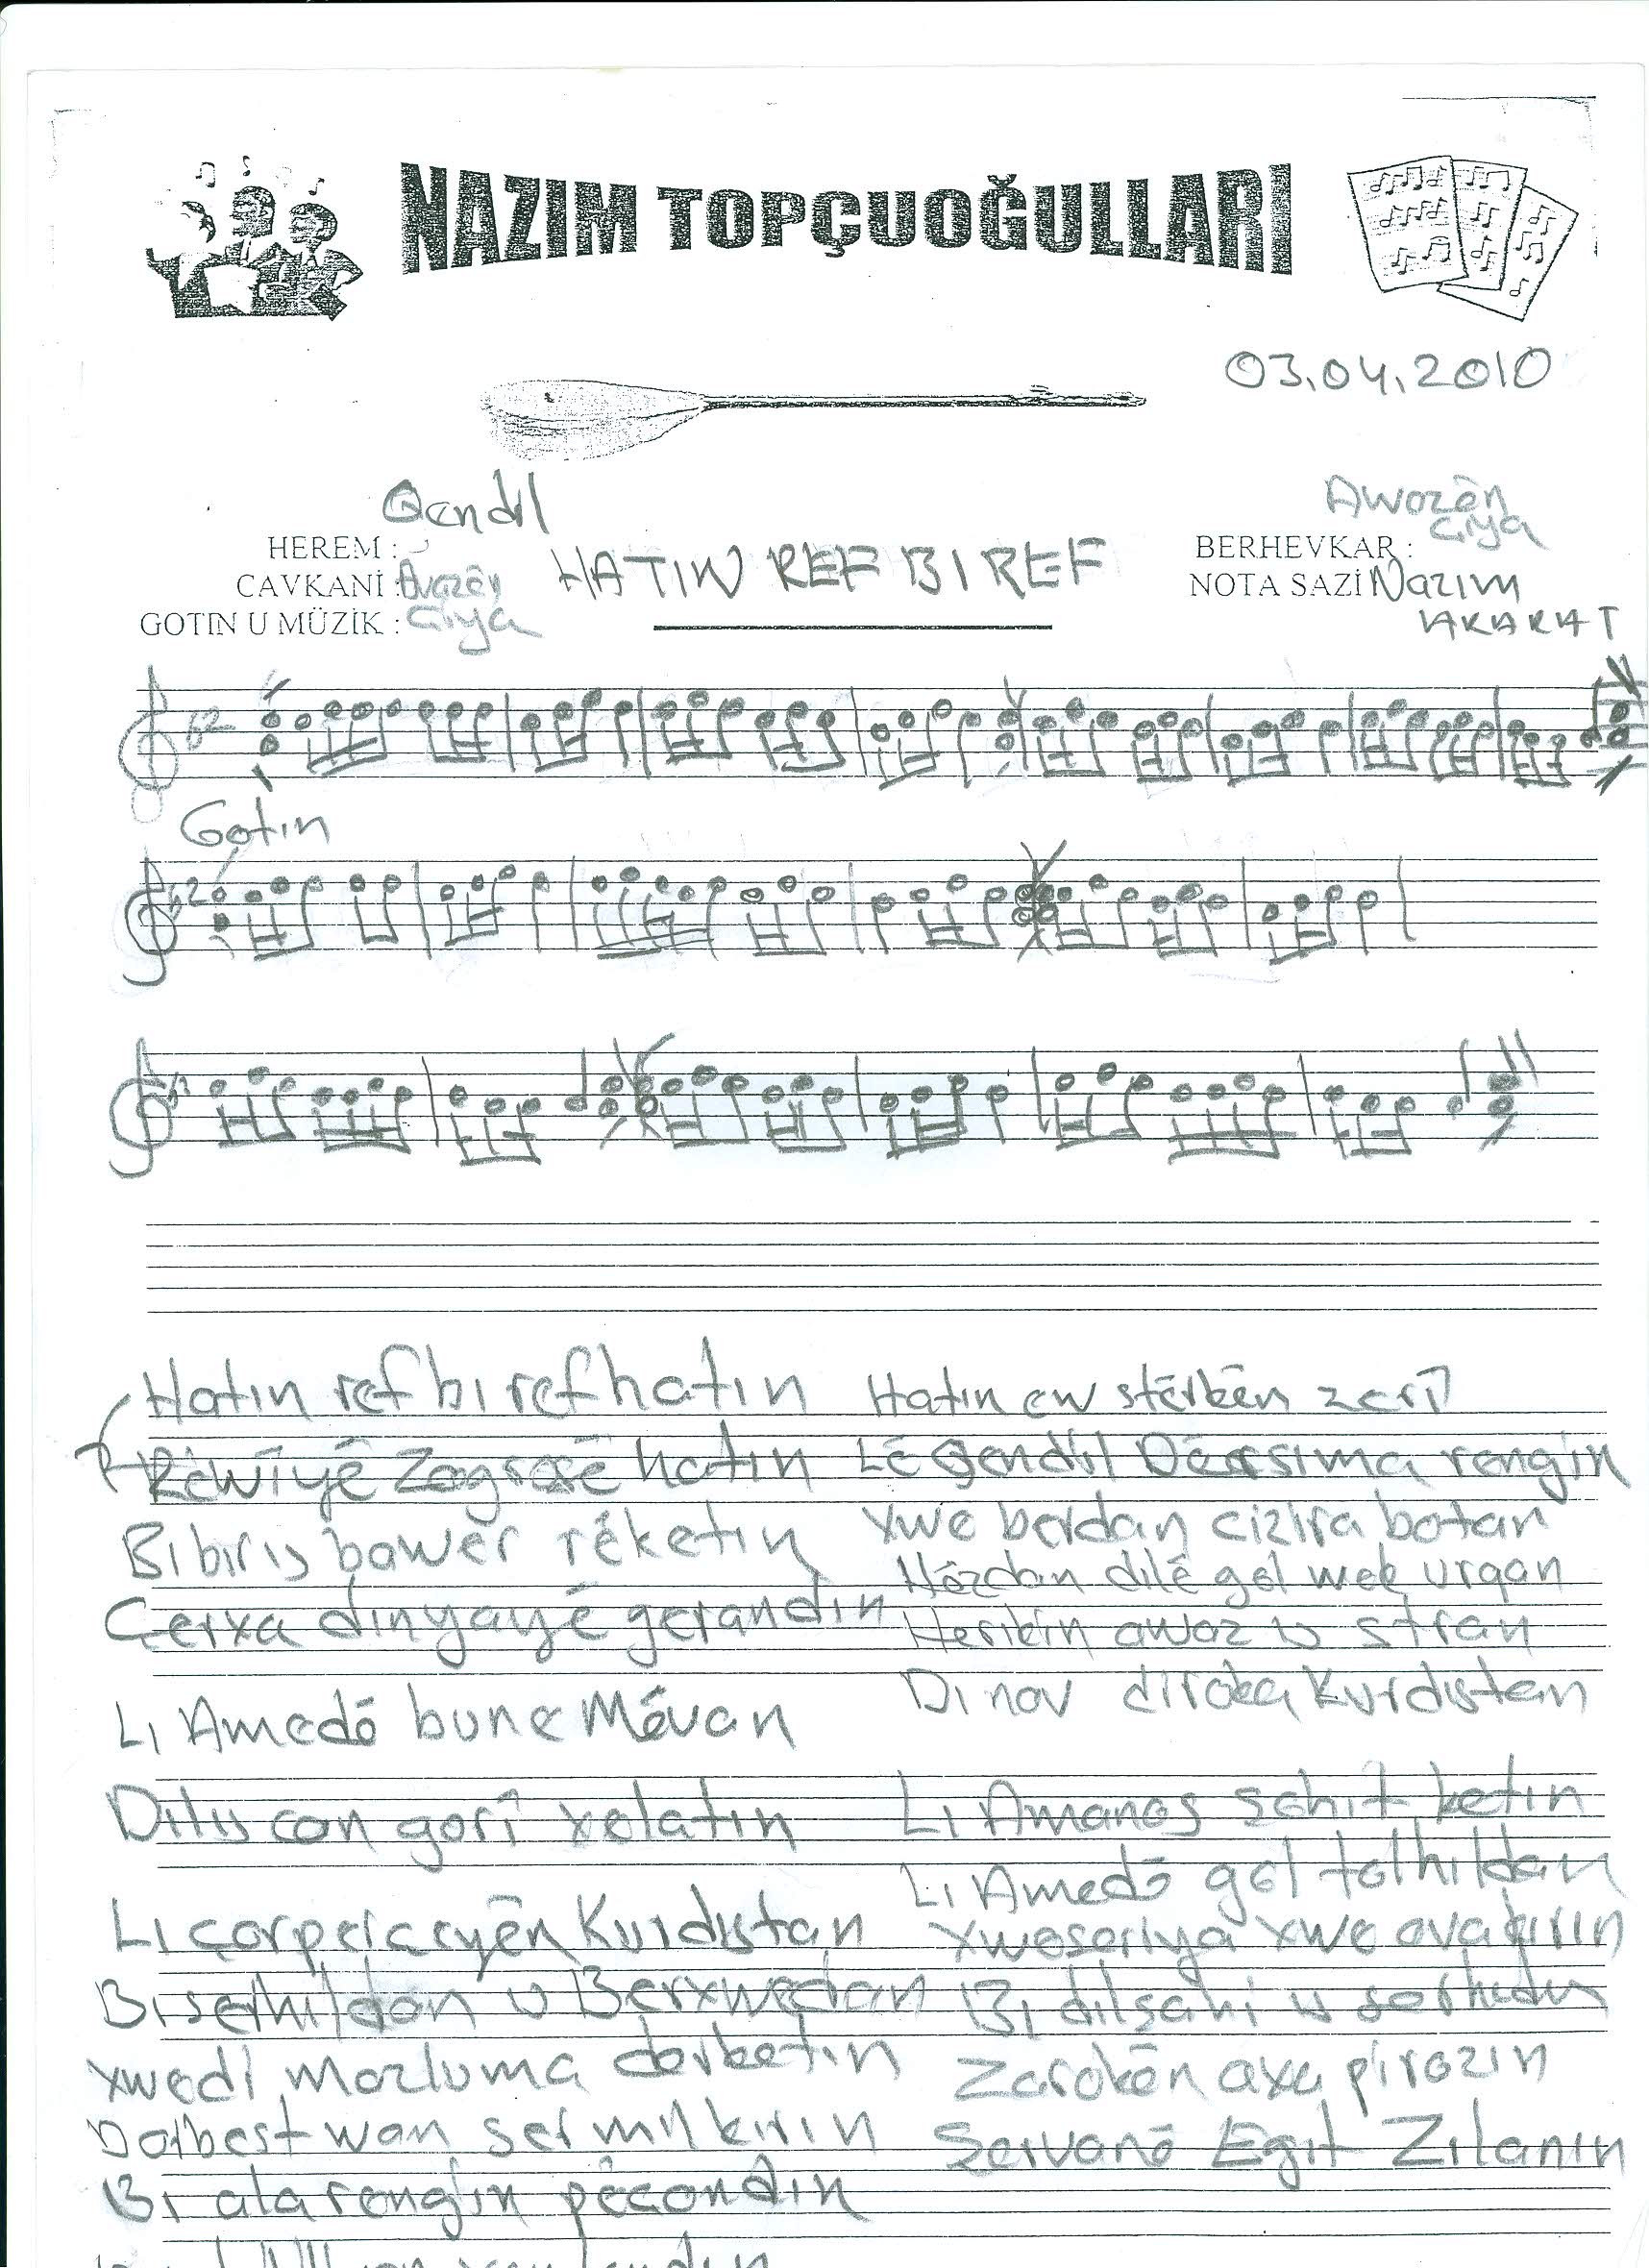 NAZIM TOPÇUOĞULLARI
03.04.2010
Qendil
HEREM :
CAVKANİ : Avazên
GOTIN U MÜZİK : Çiya
HATIN REF BI REF
Awazên
Çiya
BERHEVKAR :
NOTA SAZİ Nazım
AKARAT
Gotin
Hatin ref bi ref hatin
Rêwîyê Zagrosê hatin
Bi bir u bawer rêketin
Çerxa dinyayê gerandin
Li Amedê bune Mêvan
Dil u can gorî xelatin
Li çarperçeyên Kurdistan
Bi serhildan u Berxwedan
Xwedî Mazluma derketin
Derbest wan ser mil kirin
Bi ala rengin pêçandin
Hatin ew stêrkên zerî
Lê Qendil Dêrsima rengin
Xwe berdan cizira botan
Hêzdan dilê gel wek urqan
Herikin awaz u stran
Di nav diroka Kurdistan
Li Amanos şehit ketin
Li Amedê gel tolhildan
Xweseriya xwe avakirin
Bi dilşahi u serhedin
Zarokên axa pirozin
Şervanê Egit Zilanin